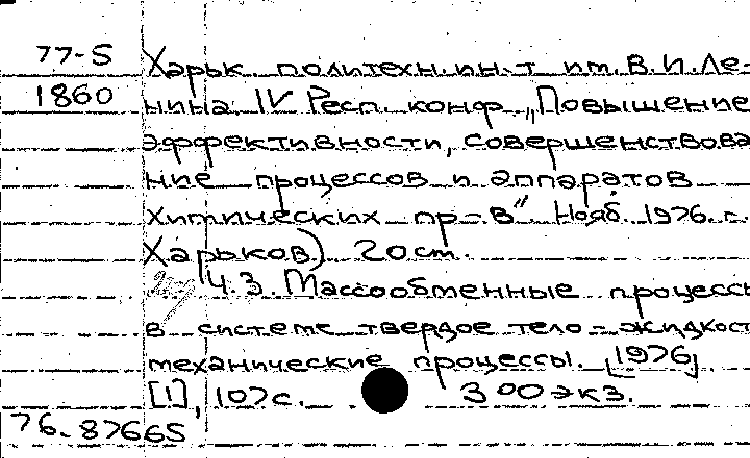 77-5 Харьк. политехн. ин-т им. В. И. Ле-
1860 нина. IV Респ. конф. „Повышение
эффективности, совершенствова
ние процессов и аппаратов
химических пр-в". Нояб. 1976. г.
Харьков) 20 cm.
Ч.3. Массообменные процессы
в системе твердое тело-жидкост
механические процессы. [1976].
[1], 107 с. 300 экз.
76-87665